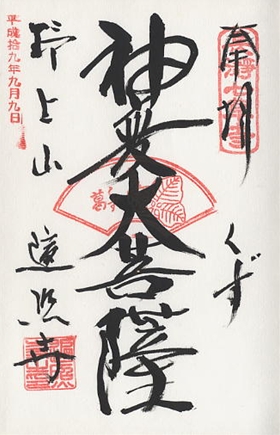 奉拝
くず
神変大菩薩
野上山
遍照寺
平成拾九年九月九日